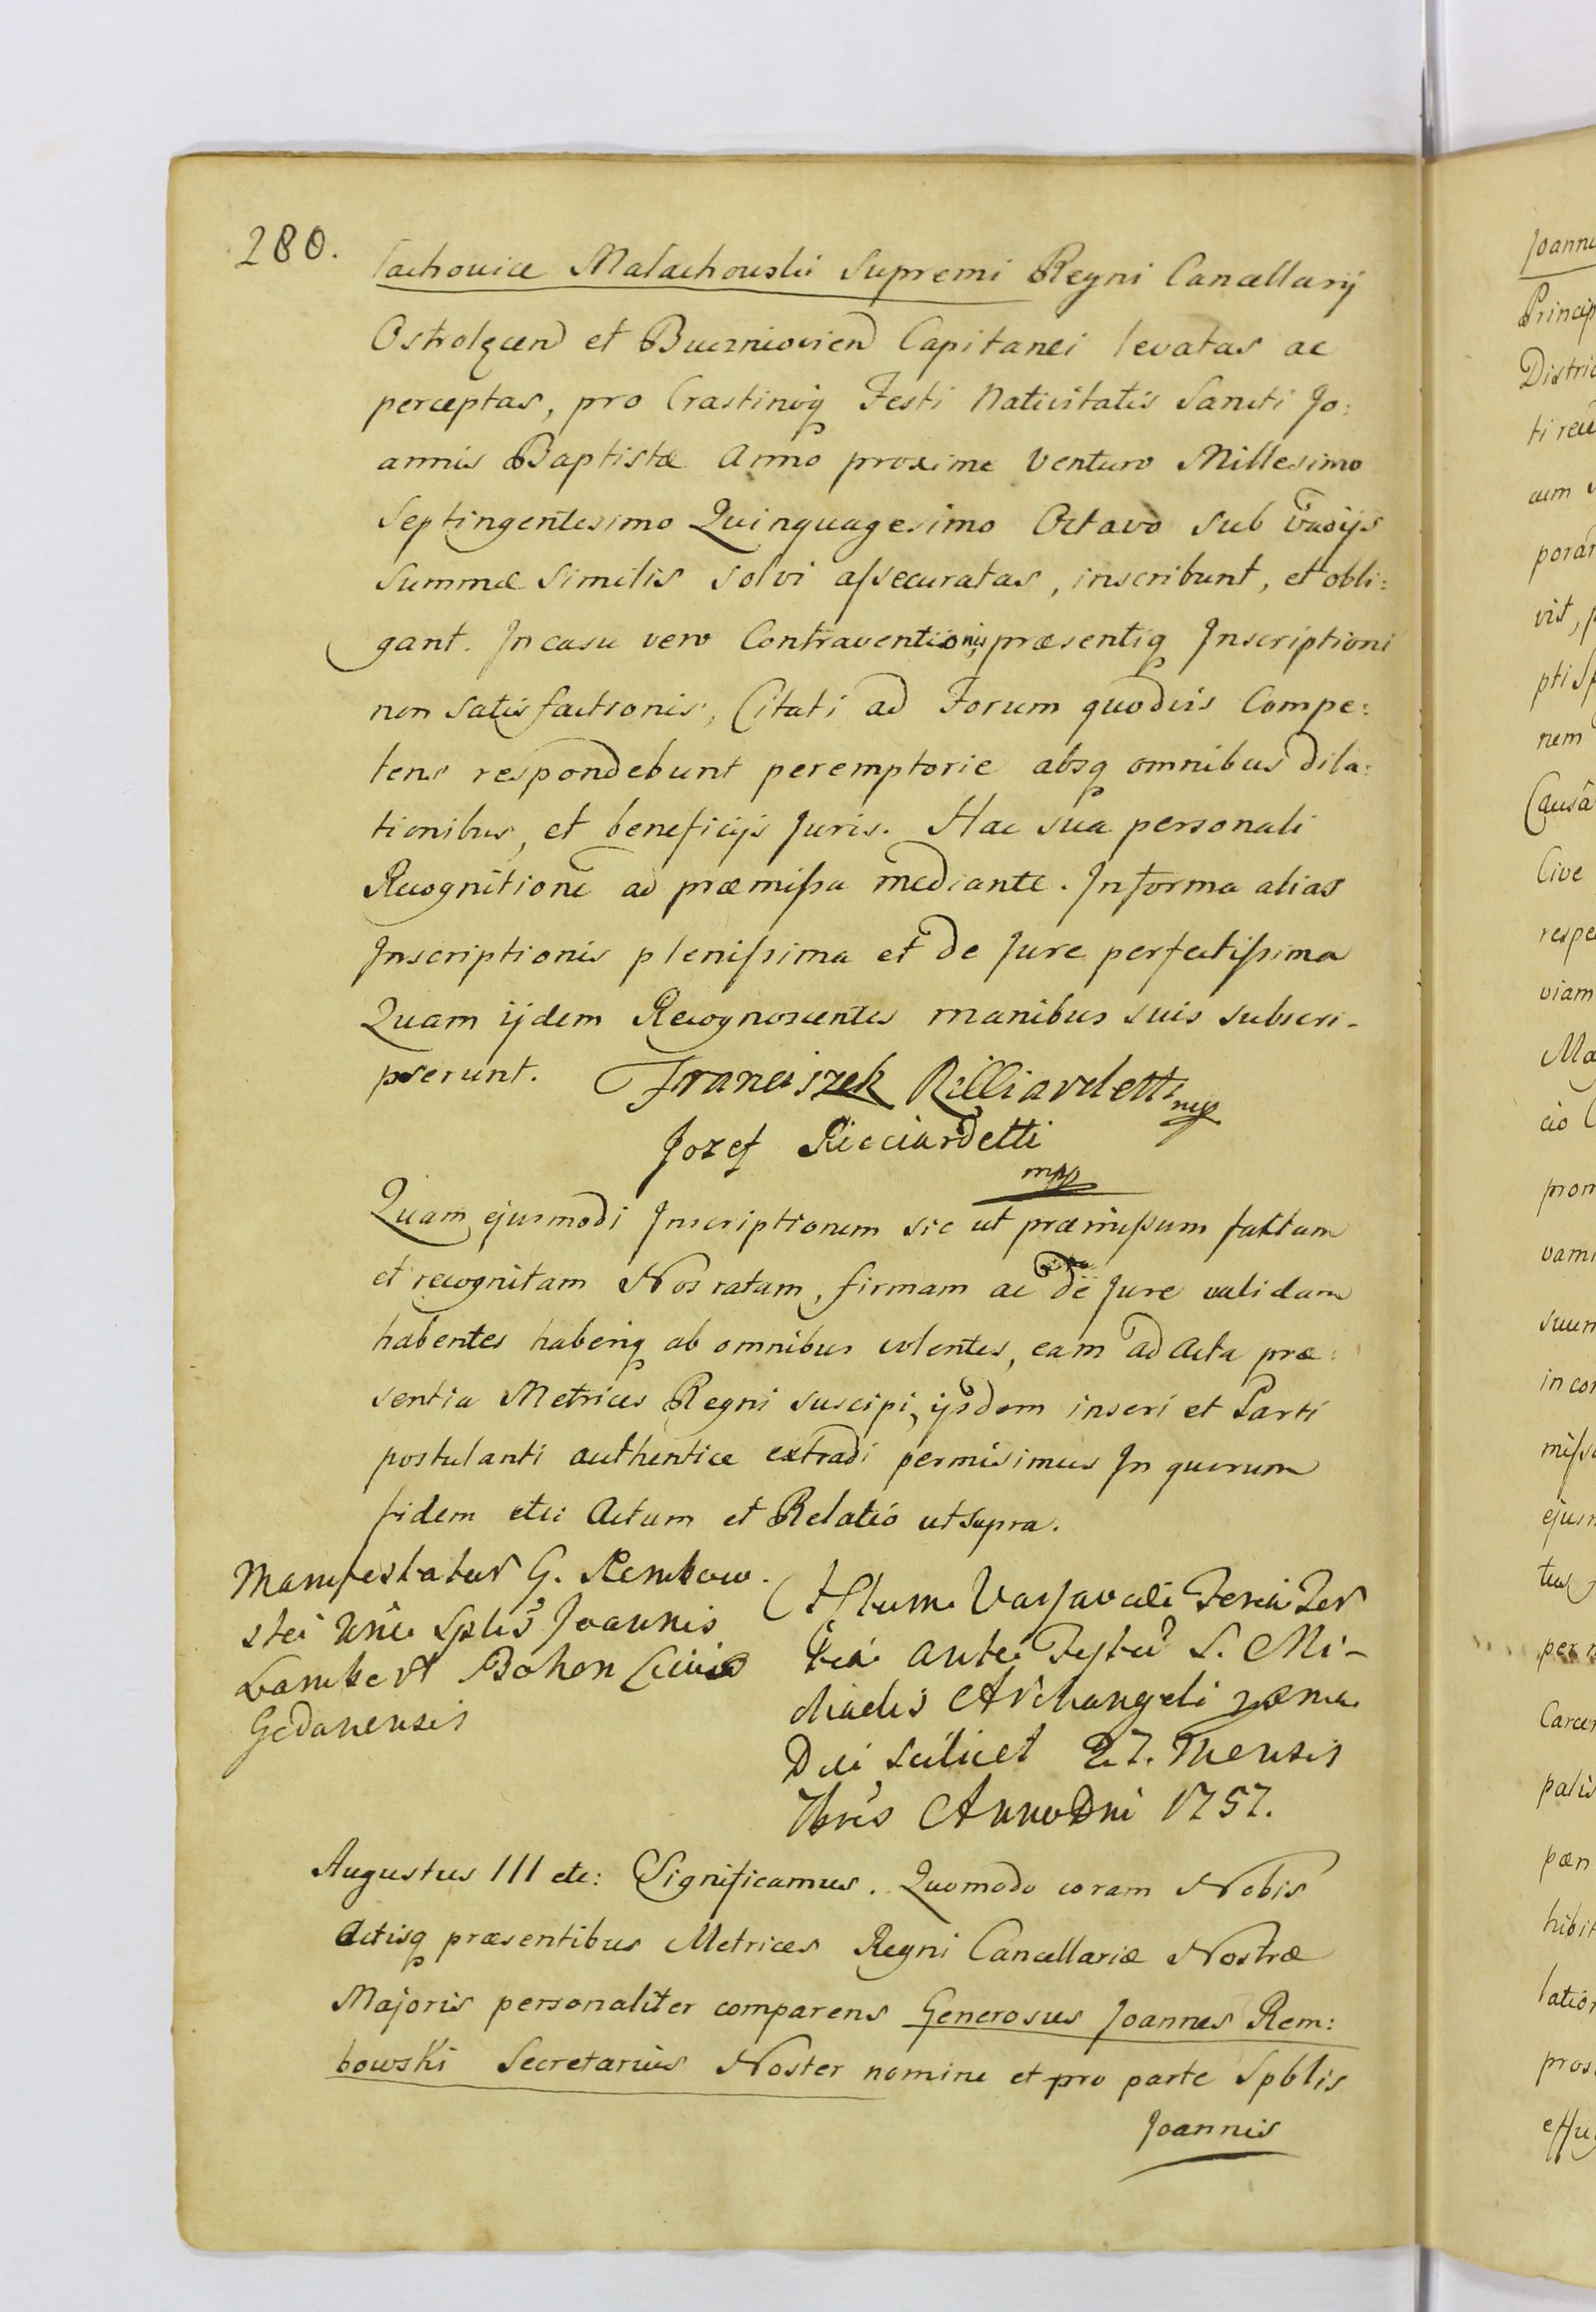 280.
lachovice Malachouski Supremi Regni Cancellarij
Ostrolęcen et Buczniovien Capitanei levatas ac
perceptas, pro Crastinoq Festi Nativitatis Sancti Jo:
annis Baptistæ Anno proxime Venturo Millesimo
Septingentesimo Quinquagesimo Octavo sub
summæ similis solvi assecuratas, inscribunt, et obli:
gant. In casu vero Contraventionis, præsentiq Inscriptioni
non satisfactionis, Citati ad Forum quodvis Compe:
tens respondebunt peremptorie absq omnibus dila:
tionibus, et beneficijs Juris. Hac sua personali
Recognitione ad præmissa mediante. In forma alias
Inscriptionis plenissima et de Jure perfectissima
Quam ijdem Recognoscentes manibus suis subscri-
pserunt. Franciszek Ricciardetti mp
Jozef Ricciardetti
mpp
Quam ejusmodi Inscriptionem sic ut præmissum factam
et recognitam Nos ratam, firmam ac de Jure validam
habentes haberiq ab omnibus volentes, eam ad Acta præ:
sentia Metrices Regni suscipi, ijsdem inseri et Parti
postulanti authentice extradi permisimus In quorum
fidem etc: Actum et Relatio ut supra.
Manifestatur G. Rembow.
ski nne Splis Joannis
Lambert Bohon Civis
Gedanensis
Actum Varsaviæ Feria Ter
tia ante Festu S. Mi-
chaelis Archangeli
Die scilicet 27. Mensis
7bris Anno Dni 1757.
Augustus III etc: Significamus. Quomodo coram Nobis
Actisq præsentibus Metrices Regni Cancellariæ Nostræ
Majoris personaliter comparens Generosus Joannes Rem:
bowski Secretarius Noster nomine et pro parte Spblis
Joannis